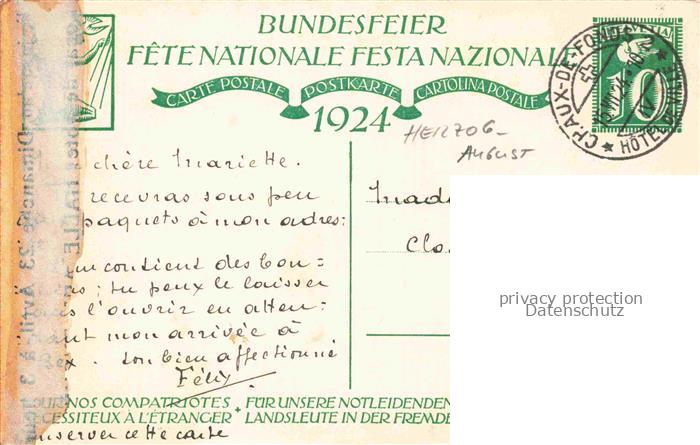 BUNDESFEIER
FÊTE NATIONALE FESTA NAZIONALE
CARTE POSTALE POSTKARTE CARTOLINA POSTALE
1924
HELVETIA
10
CHAUX-DE-FONDS 2
HÔTEL DE VILLE
HERZOG
AUGUST
chère Mariette.
recevras sous peu
paquets à mon adres:
contient des bon=
tu peux le laisser
l'ouvrir en atten:
mon arrivée à
ton bien affectionné
Félix
Mada
Clo
NOS COMPATRIOTES
CESSITEUX À L'ÉTRANGER
FÜR UNSERE NOTLEIDENDEN
LANDSLEUTE IN DER FREMDE
conserver cette carte
Dimanche 23 Avril à 3
privacy protection
Datenschutz